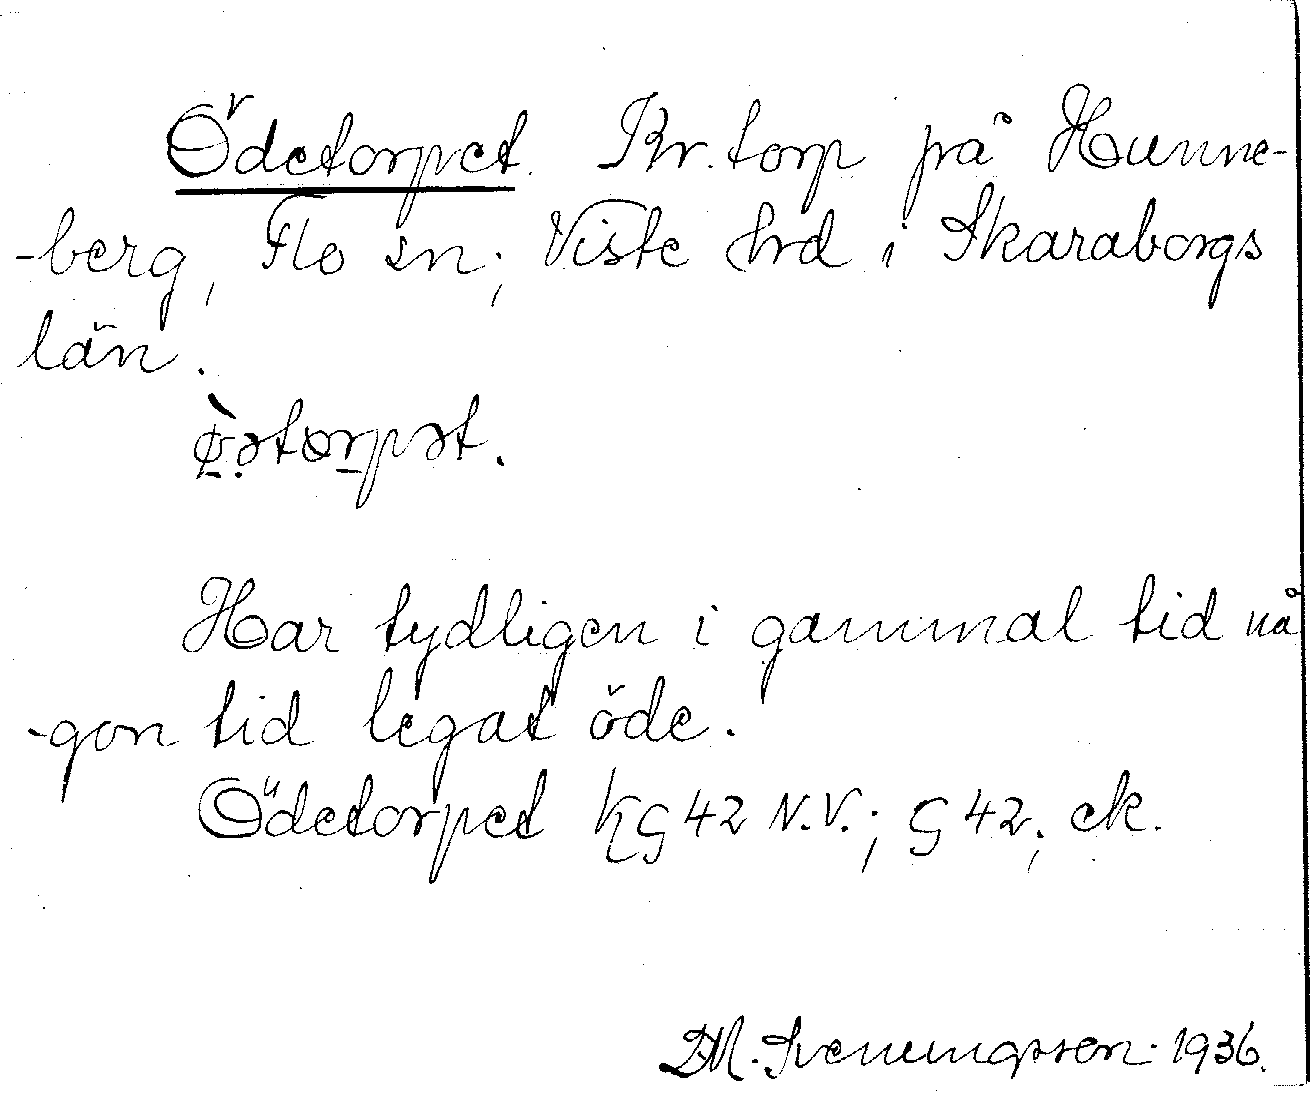 Ödetorpet. Kr. torp på Hunne-
-berg, Flo sn; Viste hrd i Skaraborgs
län.
Har tydligen i gammal tid nå
-gon tid legat öde.
Ödetorpet KG 42 N.V.; G 42; ek.
D.M. Svenungsson. 1936.